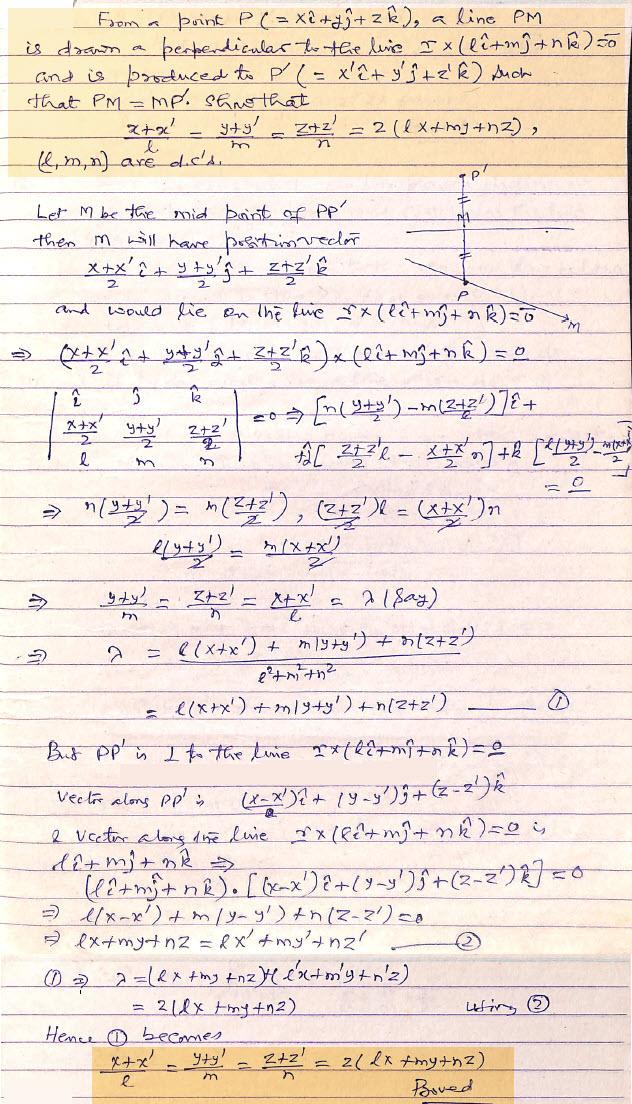 From a point P (= xî+yĵ+zk̂), a line PM
is drawn a perpendicular to the line r × (lî+mĵ+nk̂)=0̄
and is produced to P' (= x'î+y'ĵ+z'k̂) such
that PM = MP'. Show that
(x+x')/l = (y+y')/m = (z+z')/n = 2(lx+my+nz),
(l,m,n) are d.c's.
P'
Let M be the mid point of PP'
M
then M will have position vector
(x+x')/2 î + (y+y')/2 ĵ + (z+z')/2 k̂
P
and would lie on the line r×(lî+mĵ+nk̂)=0̄
M
⇒ ((x+x')/2 î + (y+y')/2 ĵ + (z+z')/2 k̂) × (lî+mĵ+nk̂) = 0
| î ĵ k̂ |
| (x+x')/2 (y+y')/2 (z+z')/2 | =0 ⇒ [n((y+y')/2) - m((z+z')/2)]î +
| l m n | +ĵ[(z+z')/2 l - (x+x')/2 n] + k̂ [l(y+y')/2 - m(x+x')/2]
= 0
⇒ n((y+y')/2) = m((z+z')/2), ((z+z')/2)l = ((x+x')/2)n
l(y+y')/2 = m(x+x')/2
⇒ (y+y')/m = (z+z')/n = (x+x')/l = λ (say)
⇒ λ = (l(x+x') + m(y+y') + n(z+z'))/(l²+m²+n²)
= l(x+x') + m(y+y') + n(z+z') —— ①
But PP' is ⊥ to the line r×(lî+mĵ+nk̂)=0
Vector along PP' is (x-x')î + (y-y')ĵ + (z-z')k̂
& vector along the line r×(lî+mĵ+nk̂)=0 is
lî+mĵ+nk̂ ⇒
(lî+mĵ+nk̂)•[(x-x')î+(y-y')ĵ+(z-z')k̂] = 0
⇒ l(x-x') + m(y-y') + n(z-z') = 0
⇒ lx+my+nz = lx'+my'+nz' —— ②
① ⇒ λ = (lx+my+nz)+(l'x+m'y+n'z)
= 2(lx+my+nz) using ②
Hence ① becomes
(x+x')/l = (y+y')/m = (z+z')/n = 2(lx+my+nz)
Proved